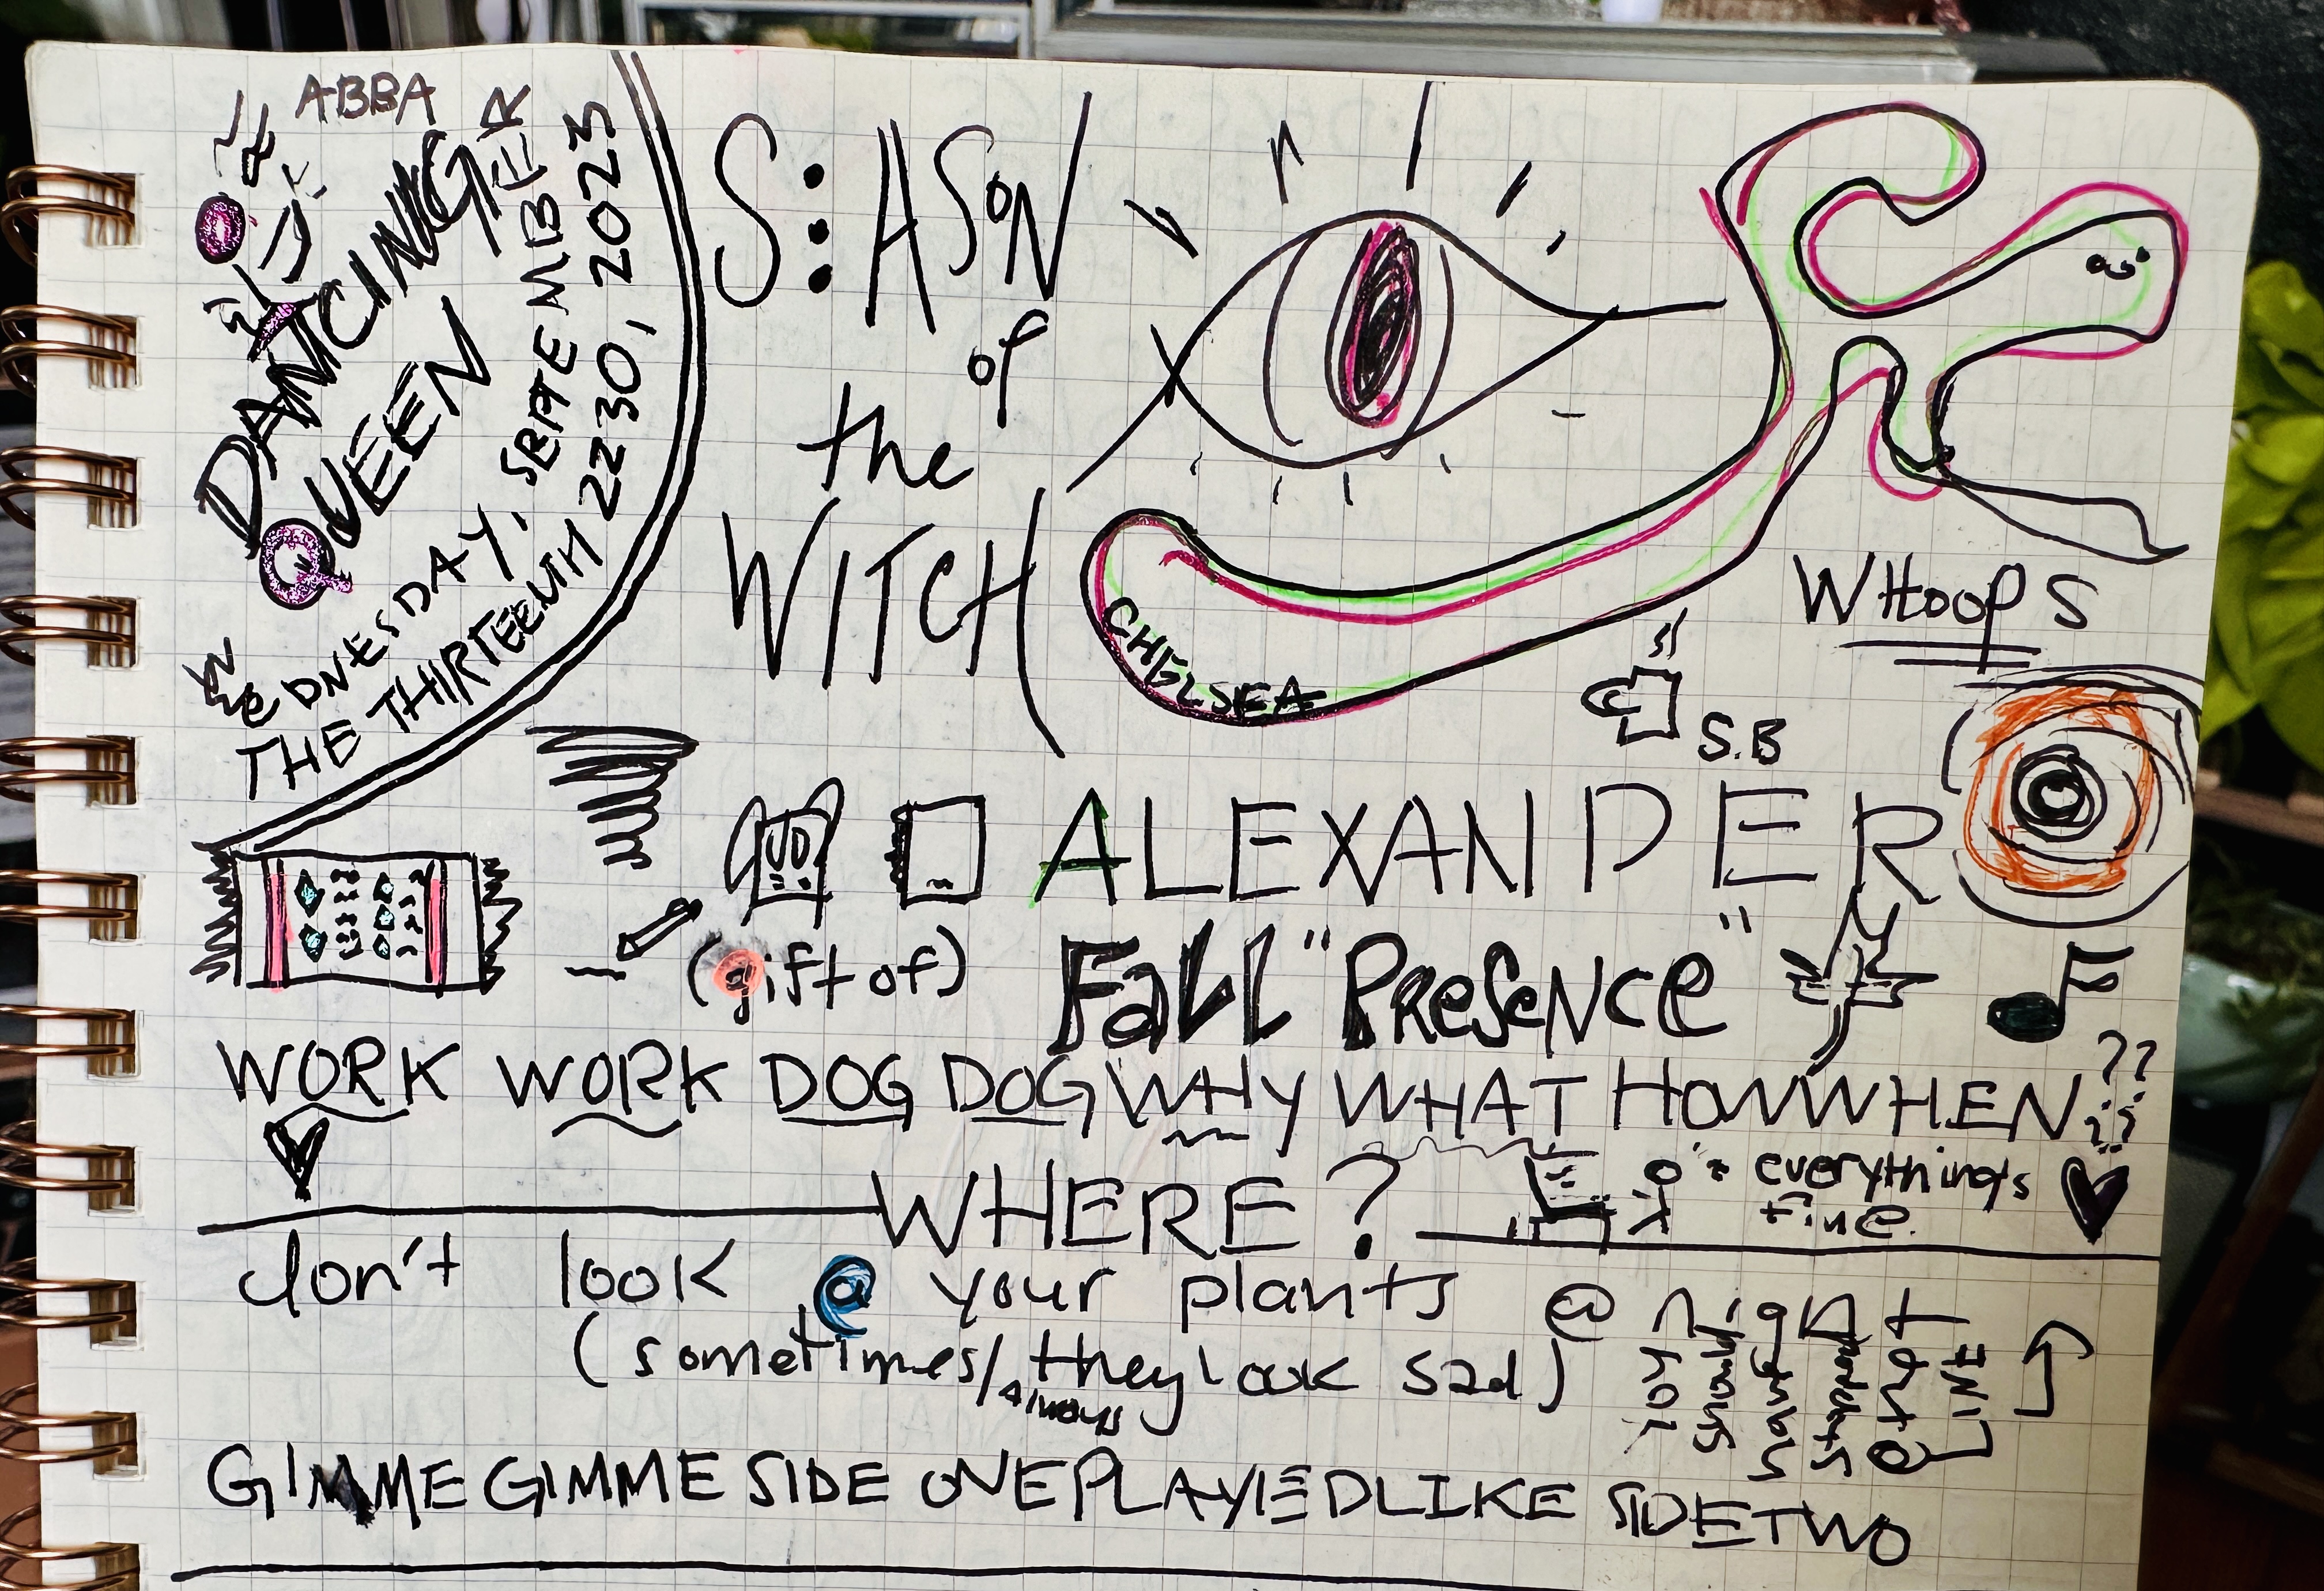 ABBA
DANCING
QUEEN
WEDNESDAY, SEPTEMBER
THE THIRTEENTH 2230, 2023
S:ASON
of
the
WITCH
CHELSEA
WHOOPS
S.B
ALEXANDER
(gift of) Fall "PReSeNce"
WORK WORK DOG DOG WHY WHAT HOW WHEN ??
WHERE?
everything's
fine.
don't look @ your plants @ night
(sometimes/always they look sad)
YOU
should
LINE
GIMME GIMME SIDE ONE PLAYED LIKE SIDE TWO